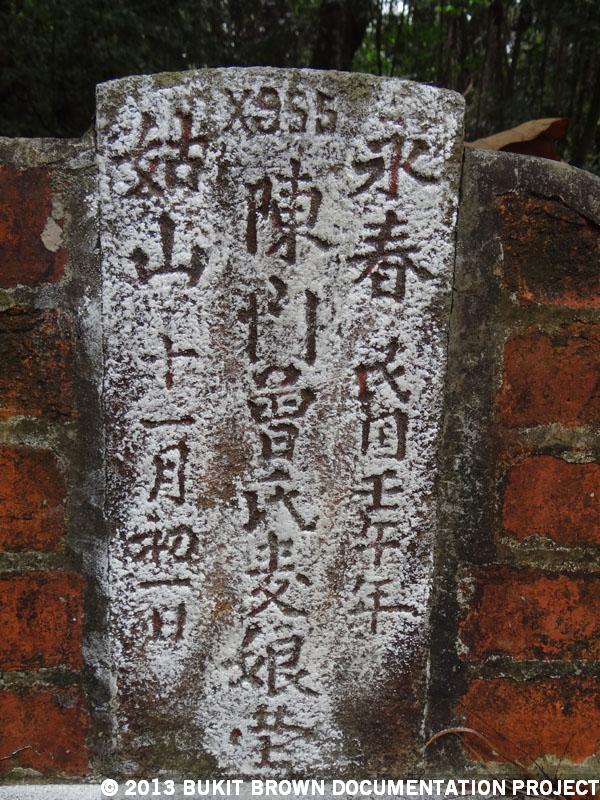 X955
永春 民国壬午年
陳门曾氏麦娘茔
姑山 十一月初一日
© 2013 BUKIT BROWN DOCUMENTATION PROJECT